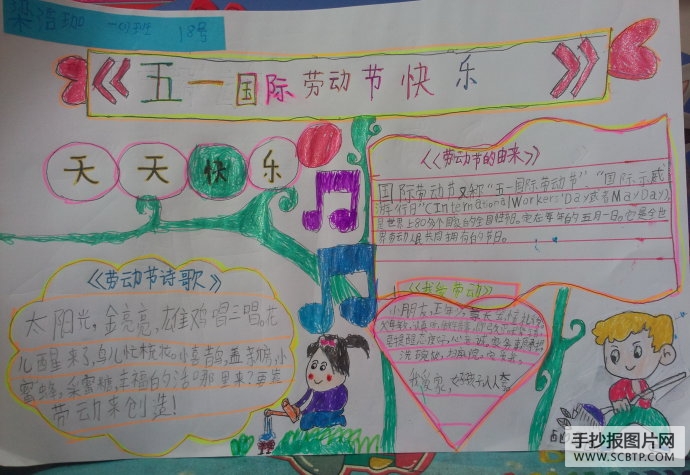 梁浩珈 一(1)班 18号
《五一国际劳动节快乐》
天天快乐
《劳动节的由来》
国际劳动节又称"五一国际劳动节"、"国际示威
游行日"(International Workers' Day或者May Day)
是世界上80多个国家的全国性节。定在每年的五月一日。它是全世
界劳动人民共同拥有的节日。
《劳动节诗歌》
太阳光,金亮亮,雄鸡唱三唱。花
儿醒来了,鸟儿忙梳妆。小喜鹊,盖新房,小
蜜蜂,采蜜糖,幸福的生活哪里来?要靠
劳动来创造!
《我爱劳动》
小朋友,
洗碗筷,扫庭院,
我爱家,好孩子人人夸。
手抄报图片网
WWW.SCBTP.COM